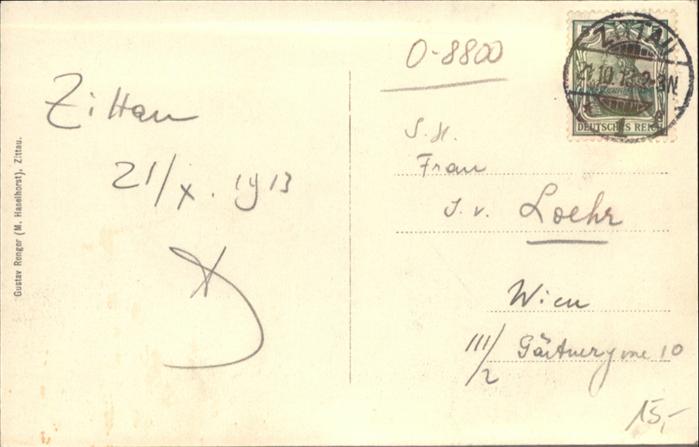 Zittau
21/X. 1913
Gustav Renger (M. Haselhorst), Zittau.
O-8800
ZITTAU
21.10.13.2-3N.
DEUTSCHES REICH
S. H.
Frau
J. v. Loehr
Wien
III/2 Gärtnergasse 10
15,-